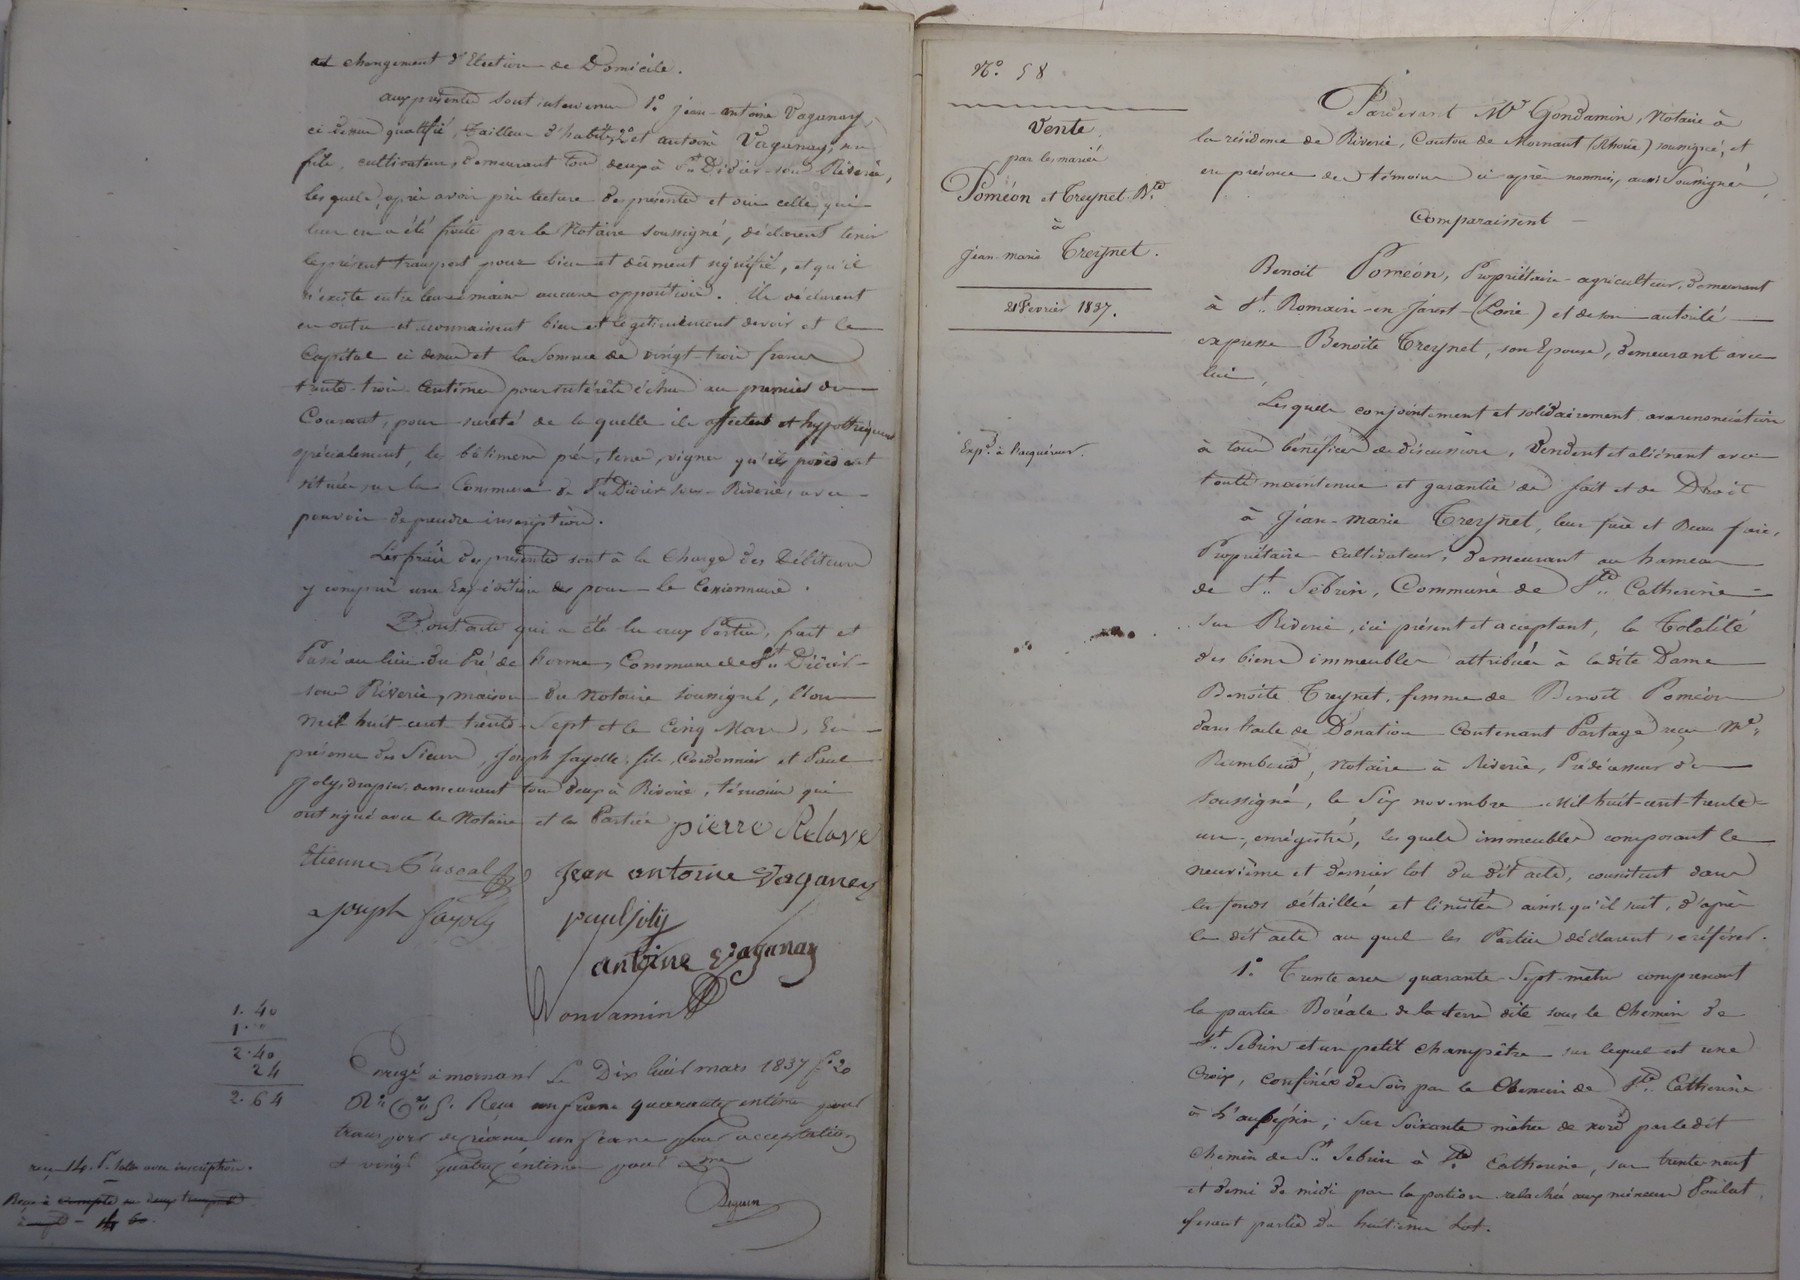 et changement d'Election de Domicile.
aux présentes sont intervenus 1.° jean-antoine Vaganay
ci-dessus qualifié, tailleur d'habits, 2.° et antoine Vaganay, son
fils, cultivateur, demeurant tous deux à St. Didier-sous Riverie,
lesquels, après avoir pris lecture des présentes et ouï celle qui
leur en a été faite par le Notaire soussigné, déclarent tenir
le présent transport pour bien et dûment signifié, et qu'il
n'existe entre leurs mains aucune opposition. Ils déclarent
en outre et reconnaissent bien et légitimement devoir et le
Capital ci dessus et la Somme de vingt-trois francs
trente-trois Centimes pour intérêts échus au premier du
Courant, pour sureté de laquelle ils affectent et hypothèquent
spécialement, les bâtiments prés, terres, vignes qu'ils possèdent
situés sur la Commune de St. Didier sous-Riverie, avec
pouvoir de prendre inscription.
Les frais des présentes sont à la Charge des Débiteurs
y compris une Expédition des pour le Cessionnaire.
Dont acte qui a été lu aux Parties, fait et
Passé au lieu du Pré de horme, Commune de St. Didier-
sous Riverie, maison du Notaire soussigné, l'an
mil huit-cent trente-Sept et le Cinq Mars, En
présence des Sieurs, Joseph fayolle fils, Cordonnier et Paul
Joly, drapier, demeurant tous deux à Riverie, témoins qui
ont signé avec le Notaire et les Parties pierre Relave
Etienne Pascal jean antoine Vaganey
Joseph fayoly paul joly
antoine Vaganay
Gondamin
1. 40
1. "
2. 40
24
2. 64
Enregé à mornant Le Dix huit mars 1837 f° 20
R° Cse 5. Reçu un franc quarante centimes pour
transport de créance un franc pour acceptation
& vingt quatre centimes pour Xme
reçu 14. f. solde avec inscription.
Reçu à compte
N.° 58
Vente
par les mariés
Poméon et Treynet. Bte
à
jean-marie Treynet.
21 Fevrier 1837.
Exp.on à l'acquéreur.
Pardevant Me Gondamin, Notaire à
la résidence de Riverie, Canton de Mornant (Rhône) soussigné, et
en présence des témoins ci après nommés, aussi Soussignés,
Comparaissent
Benoit Poméon, Propriétaire-agriculteur, demeurant
à St. Romain-en-Jarest-(Loire) et de son autorité
expresse Benoite Treynet, son Epouse, demeurant avec
lui,
Lesquels conjointement et solidairement avec renonciation
à tous bénéfices de discussion, Vendent et aliénent avec
toute maintenue et garantie de fait et de Droit
à Jean-marie Treynet, leur frère et Beau frère,
Propriétaire-Cultivateur, demeurant au hameau
de St. Sebrin, Commune de Ste. Catherine-
Sur Riverie, ici présent et acceptant, la Totalité
des biens immeubles attribués à la dite Dame
Benoite Treynet, femme de Benoit Poméon
dans l'acte de Donation Contenant Partage reçu Me.
Rumbaud, Notaire à Riverie, Prédécesseur du
soussigné, le Six novembre Mil huit-cent-trente-
un, enregistré, lesquels immeubles composant le
neuvième et dernier lot du dit acte, consistent dans
les fonds détaillés et limités ainsi qu'il suit, d'après
le dit acte au quel les Parties déclarent se référer.
1.° Trente ares quarante-Sept mètres comprenant
la partie Boréale de la terre dite sous le Chemin de
St. Sebrin et un petit champêtre sur lequel est une
Croix, confinés de soir par le Chemin de Ste. Catherine
à L'aubépin; sur Soixante mètres de nord par le dit
Chemin de St. Sebrin à Ste. Catherine, sur trente-neuf
et demi de midi par la portion relachée aux mineurs Poulat,
fesant partie du huitième Lot.